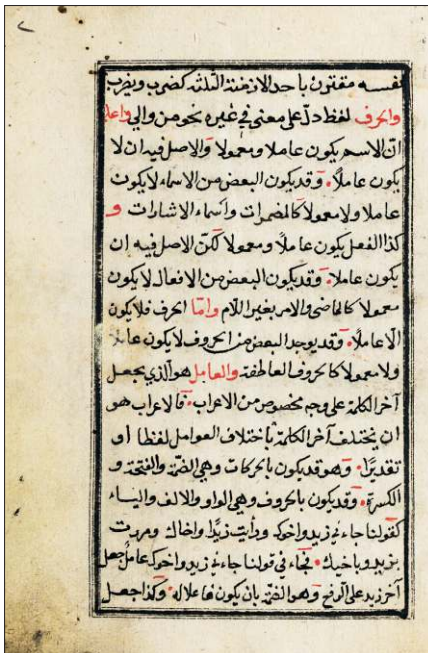 نفسه مقترن باحد الازمنة الثلثة كضرب ويضرب
والحرف لفظ دل على معنى في غيره نحو من والى واعلم
ان الاسم يكون عاملا ومعمولا والاصل فيه ان لا
يكون عاملا وقد يكون البعض من الاسماء لا يكون
عاملا ولا معمولا كالمضمرات واسماء الاشارات و
كذا الفعل يكون عاملا ومعمولا لكن الاصل فيه ان
يكون عاملا وقد يكون البعض من الافعال لا يكون
معمولا كالماضى والامر بغير اللام واما الحرف فلا يكون
الا عاملا وقد يوجد البعض من الحروف لا يكون عاملا
ولا معمولا كالحروف العاطفة والعامل هو الذي يجعل
آخر الكلمة على وجه مخصوص من الاعراب فالاعراب هو
ان يختلف آخر الكلمة باختلاف العوامل لفظا او
تقديرا وهو قد يكون بالحركات وهي الضمة والفتحة و
الكسرة وقد يكون بالحروف وهي الواو والالف والياء
كقولنا جاءني زيد واخوك ورأيت زيدا واخاك ومررت
بزيد وباخيك فجاء في قولنا جاءني زيد واخوك عامل جعل
آخر زيد على الرفع وهو الضمة بان يكون فاعلا له وكذا جعل